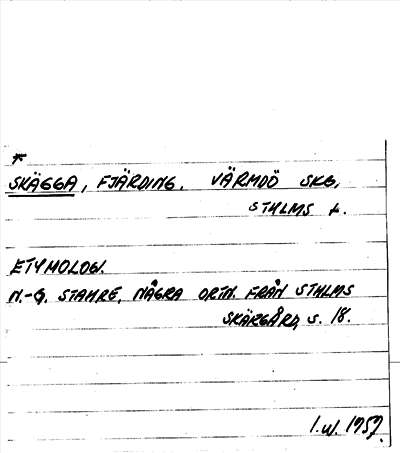 *
SKÄGGA, FJÄRDING. VÄRMDÖ SKG,
STHLMS L.
ETYMOLOG.
N.-G. STAHRE, NÅGRA ORTN. FRÅN STHLMS
SKÄRGÅRD, S. 18.
I.W. 1957.